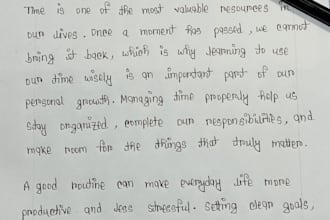 Time is one of the most valuable resources in
our lives. Once a moment has passed, we cannot
bring it back, which is why learning to use
our time wisely is an important part of our
personal growth. Managing time properly help us
stay organized, complete our responsibilities, and
make room for the things that truly matter.
A good routine can make everyday life more
productive and less stressful. Setting clear goals,